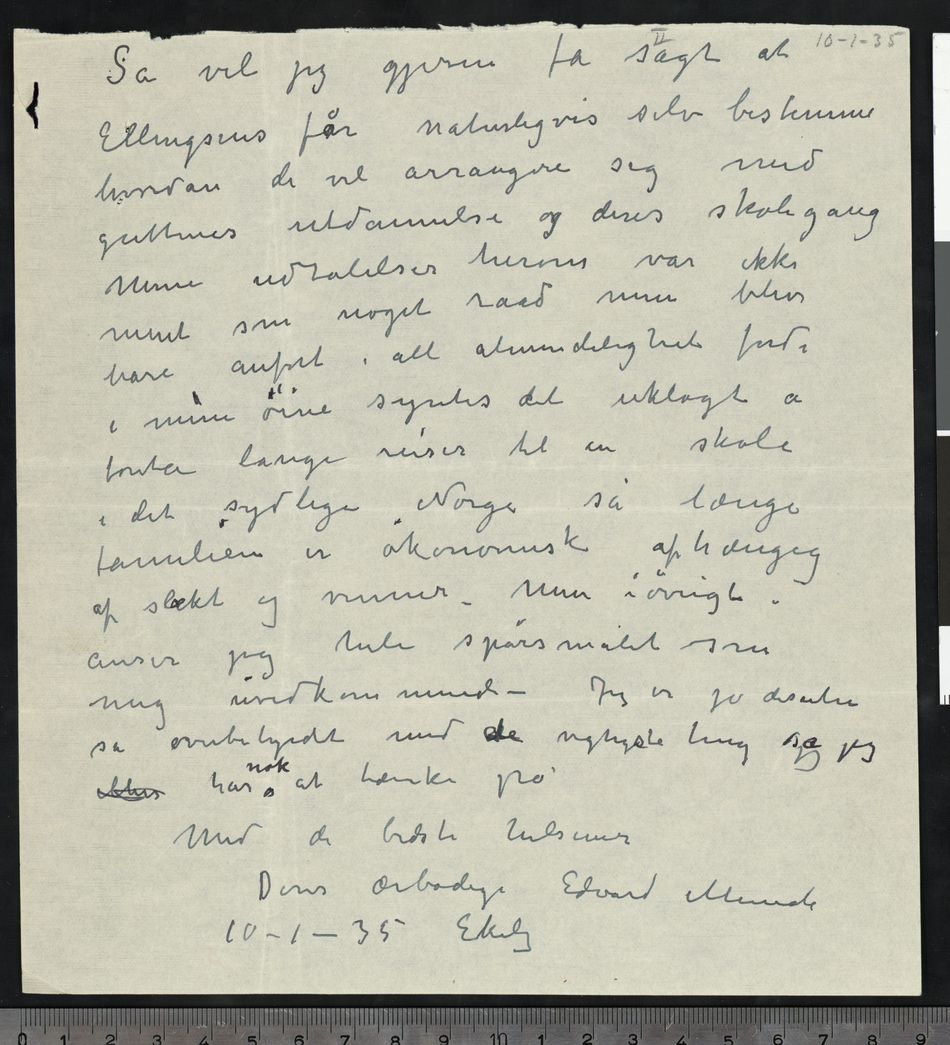 10-1-35
II
Så vil jeg gjerne få sagt at
Ellingsens får naturligvis selv bestemme
hvordan de vil arrangere sig med
guttenes utdannelse og deres skolegang
Mine udtalelser herom var ikke
ment som noget raad men blev
bare anført i all almindelighet fordi
i mine öine syntes det uklogt a
foreta lange reiser til en skole
i det sydlige Norge så længe
familien er økonomisk afhængig
af slækt og venner – Men iövrigt
anser jeg hele spörsmålet som
mig uvedkommende – Jeg er jo desuten
så overbebyrdet med de vigtigste ting så jeg
har nok at tænke på
Med de bedste hilsener
Deres ærbødige Edvard Munch
10-1-35 Ekely